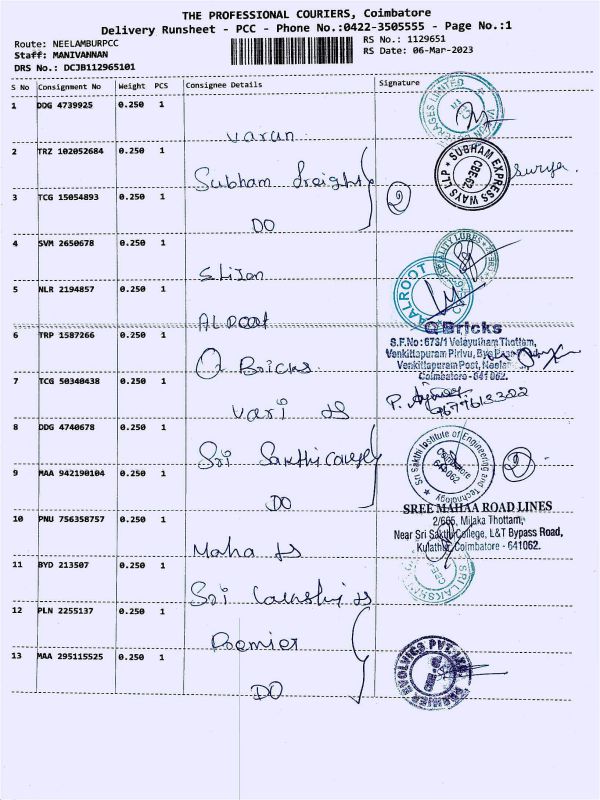 THE PROFESSIONAL COURIERS, Coimbatore
Delivery Runsheet - PCC - Phone No.:0422-3505555 - Page No.:1
Route: NEELAMBURPCC
RS No.: 1129651
Staff: MANIVANNAN
RS Date: 06-Mar-2023
DRS No.: DCJB112965101
S No Consignment No Weight PCS Consignee Details Signature
1 DDG 4739925 0.250 1
Varun
2 TRZ 102052684 0.250 1
SUBHAM EXPRESS WAYS LLP
CBE-62
Surya.
Subham freight
3 TCG 15054893 0.250 1
2
DO
4 SVM 2650678 0.250 1
5 NLR 2194857 0.250 1
AALROOT
QBricks
S.F.No: 673/1 Velayutham Thottam,
6 TRP 1587266 0.250 1
Venkittapuram Pirivu, Bye Pass
Venkittapuram Post,
Q Bricks
Coimbatore - 641 062.
7 TCG 50340438 0.250 1
9677613302
8 DDG 4740678 0.250 1
Sri Sakthi Institute of Engineering and Technology
Coimbatore
641 062
2
Sri Sakthi
9 MAA 942190104 0.250 1
DO
SREE MAHAA ROAD LINES
10 PNU 756358757 0.250 1
2/665, Milaka Thottam,
Near Sri Sakthi College, L&T Bypass Road,
Kulathur, Coimbatore - 641062.
Maha
11 BYD 213507 0.250 1
Sri
12 PLN 2255137 0.250 1
Premier
13 MAA 295115525 0.250 1
PREMIER EVOLVICS PVT. LTD.
DO